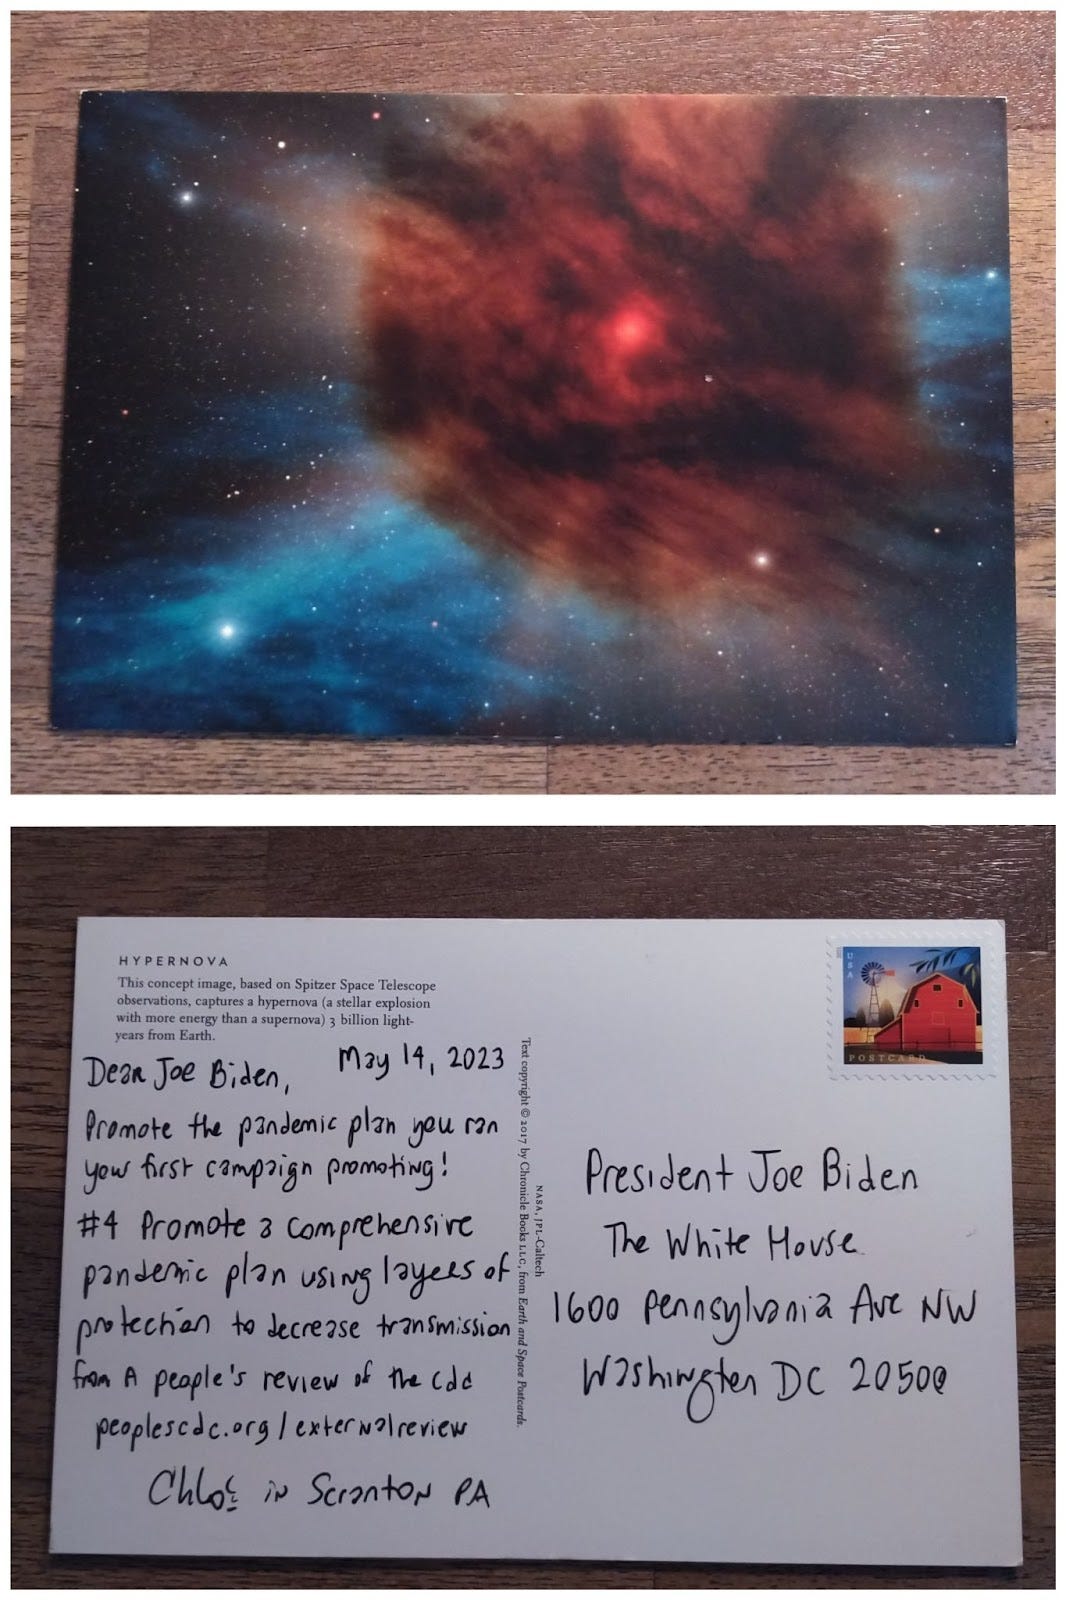 HYPERNOVA
This concept image, based on Spitzer Space Telescope
observations, captures a hypernova (a stellar explosion
with more energy than a supernova) 3 billion light-
years from Earth.
May 14, 2023
Dear Joe Biden,
Promote the pandemic plan you ran
your first campaign promoting!
#4 Promote a comprehensive
pandemic plan using layers of
protection to decrease transmission
from A people's review of the cdc
peoplescdc.org/externalreview
Chloe in Scranton PA
NASA, JPL-Caltech
Text copyright © 2017 by Chronicle Books LLC, from Earth and Space Postcards.
USA
POSTCARD
President Joe Biden
The White House
1600 Pennsylvania Ave NW
Washington DC 20500